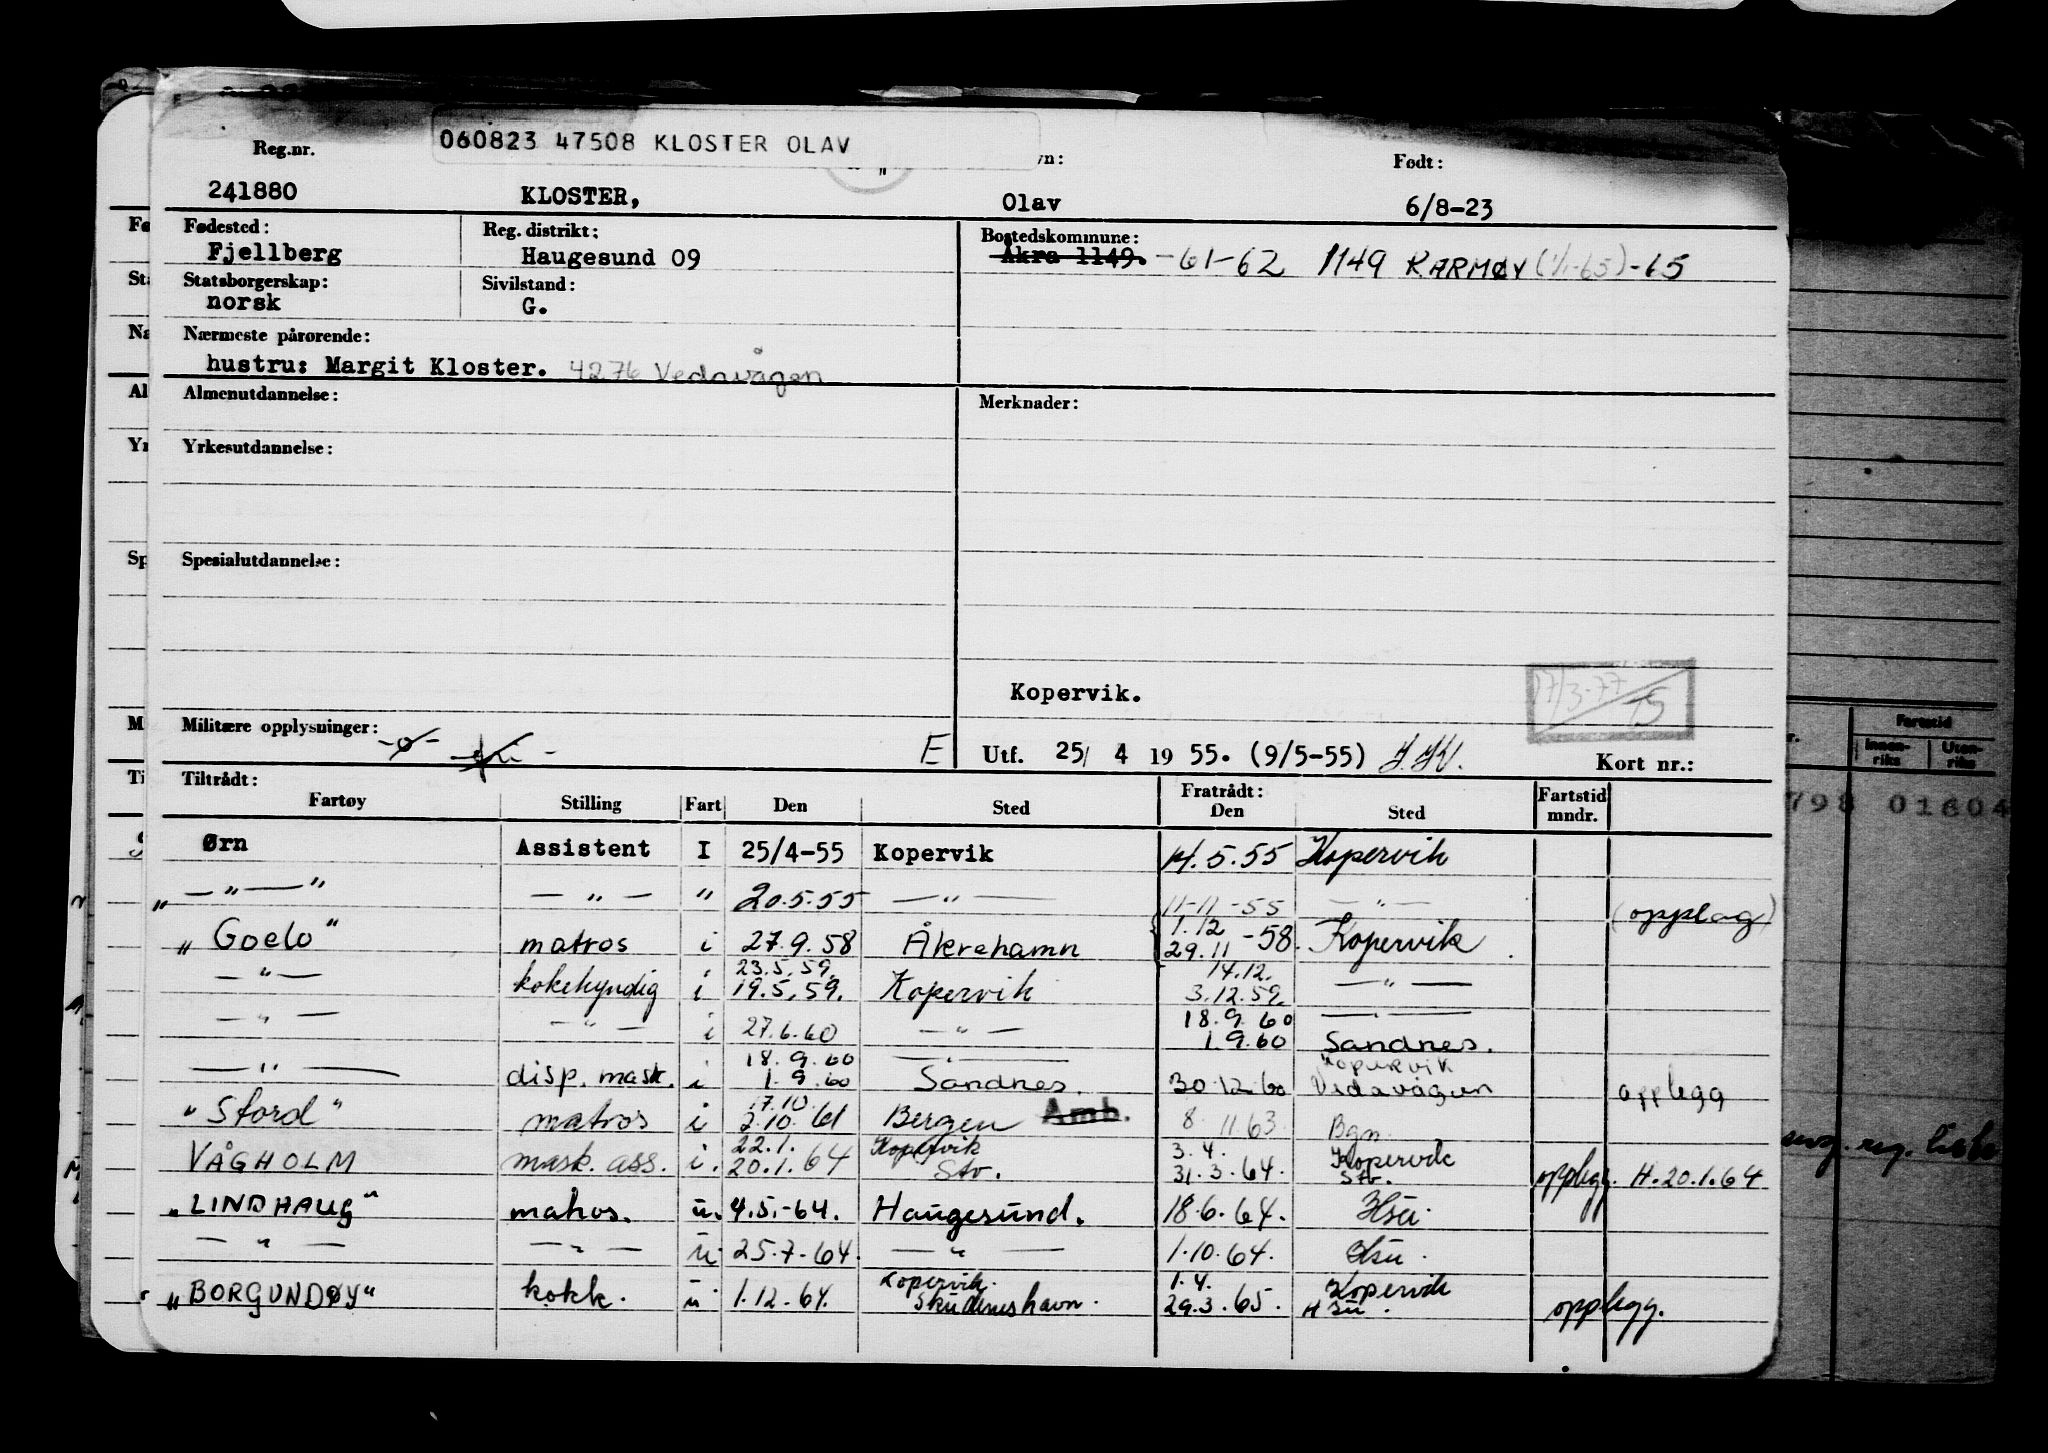 060823 47508 KLOSTER OLAV
Reg.nr. Født:
241880 KLOSTER, Olav 6/8-23
Fødested: Reg. distrikt: Bostedskommune:
Fjellberg Haugesund 09 Åkra 1149. -61-62 1149 KARMØY (1/1-65)-65
Statsborgerskap: Sivilstand:
norsk G.
Nærmeste pårørende:
hustru: Margit Kloster. 4276 Vedavågen
Almenutdannelse: Merknader:
Yrkesutdannelse:
Spesialutdannelse:
Kopervik. 17/3-77 15
Militære opplysninger: -o-
E Utf. 25/ 4 19 55. (9/5-55) Kort nr.:
Tiltrådt: Fratrådt:
Fartøy Stilling Fart Den Sted Den Sted Fartstid mndr.
Ørn Assistent I 25/4-55 Kopervik 14.5.55 Kopervik
„ — " — " — " — " 20.5.55 — " — 11-11-55 — " — (opplag)
„Goelo" matros i 27.9.58 Åkrehamn 1.12 29.11-58. Kopervik
— " — kokekyndig i 23.5.59. 19.5.59. Kopervik 14.12. 3.12.59. — " —
— " — — " — i 27.6.60 — " — 18.9.60 — " —
1.9.60 Sandnes.
— " — disp. mask. i 18.9.60 1.9.60 — " — Sandnes 30.12.60 Kopervik Vedavågen opplegg
"Stord" matros i 17.10. 2.10.61 Bergen Amb. 8.11.63 Bgn.
VÅGHOLM mask. ass. i. 22.1. 20.1.64 Kopervik Stv. 3.4. 31.3.64. Kopervik Stv. opplegg. H.20.1.64
„LINDHAUG" matros. u. 4.5.-64. Haugesund. 18.6.64. Hsu.
— " — — " — u. 25.7.-64. — " — 1.10.64. Hsu.
„BORGUNDØY" kokk. u. 1.12-64. Kopervik. Skudeneshavn. 1.4. 29.3.65. Kopervik Hsu. opplegg.
Fartstid
Innenriks Utenriks
798 01604